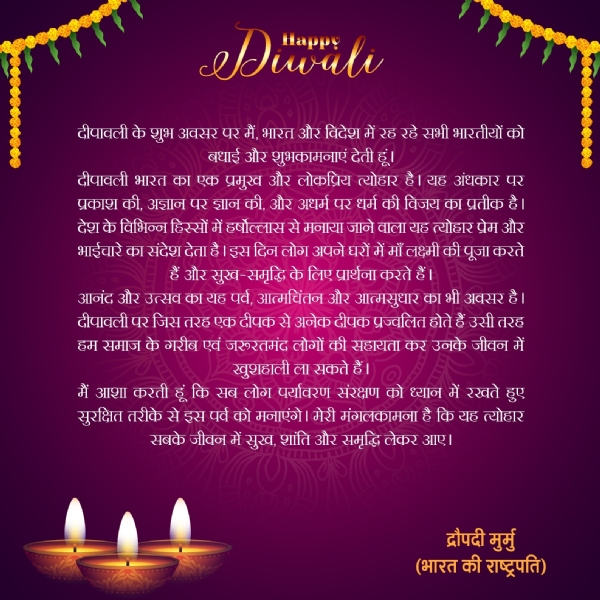 Happy
Diwali
दीपावली के शुभ अवसर पर मैं, भारत और विदेश में रह रहे सभी भारतीयों को
बधाई और शुभकामनाएं देती हूं।
दीपावली भारत का एक प्रमुख और लोकप्रिय त्योहार है। यह अंधकार पर
प्रकाश की, अज्ञान पर ज्ञान की, और अधर्म पर धर्म की विजय का प्रतीक है।
देश के विभिन्न हिस्सों में हर्षोल्लास से मनाया जाने वाला यह त्योहार प्रेम और
भाईचारे का संदेश देता है। इस दिन लोग अपने घरों में माँ लक्ष्मी की पूजा करते
हैं और सुख-समृद्धि के लिए प्रार्थना करते हैं।
आनंद और उत्सव का यह पर्व, आत्मचिंतन और आत्मसुधार का भी अवसर है।
दीपावली पर जिस तरह एक दीपक से अनेक दीपक प्रज्वलित होते हैं उसी तरह
हम समाज के गरीब एवं जरूरतमंद लोगों की सहायता कर उनके जीवन में
खुशहाली ला सकते हैं।
मैं आशा करती हूं कि सब लोग पर्यावरण संरक्षण को ध्यान में रखते हुए
सुरक्षित तरीके से इस पर्व को मनाएंगे। मेरी मंगलकामना है कि यह त्योहार
सबके जीवन में सुख, शांति और समृद्धि लेकर आए।
द्रौपदी मुर्मु
(भारत की राष्ट्रपति)